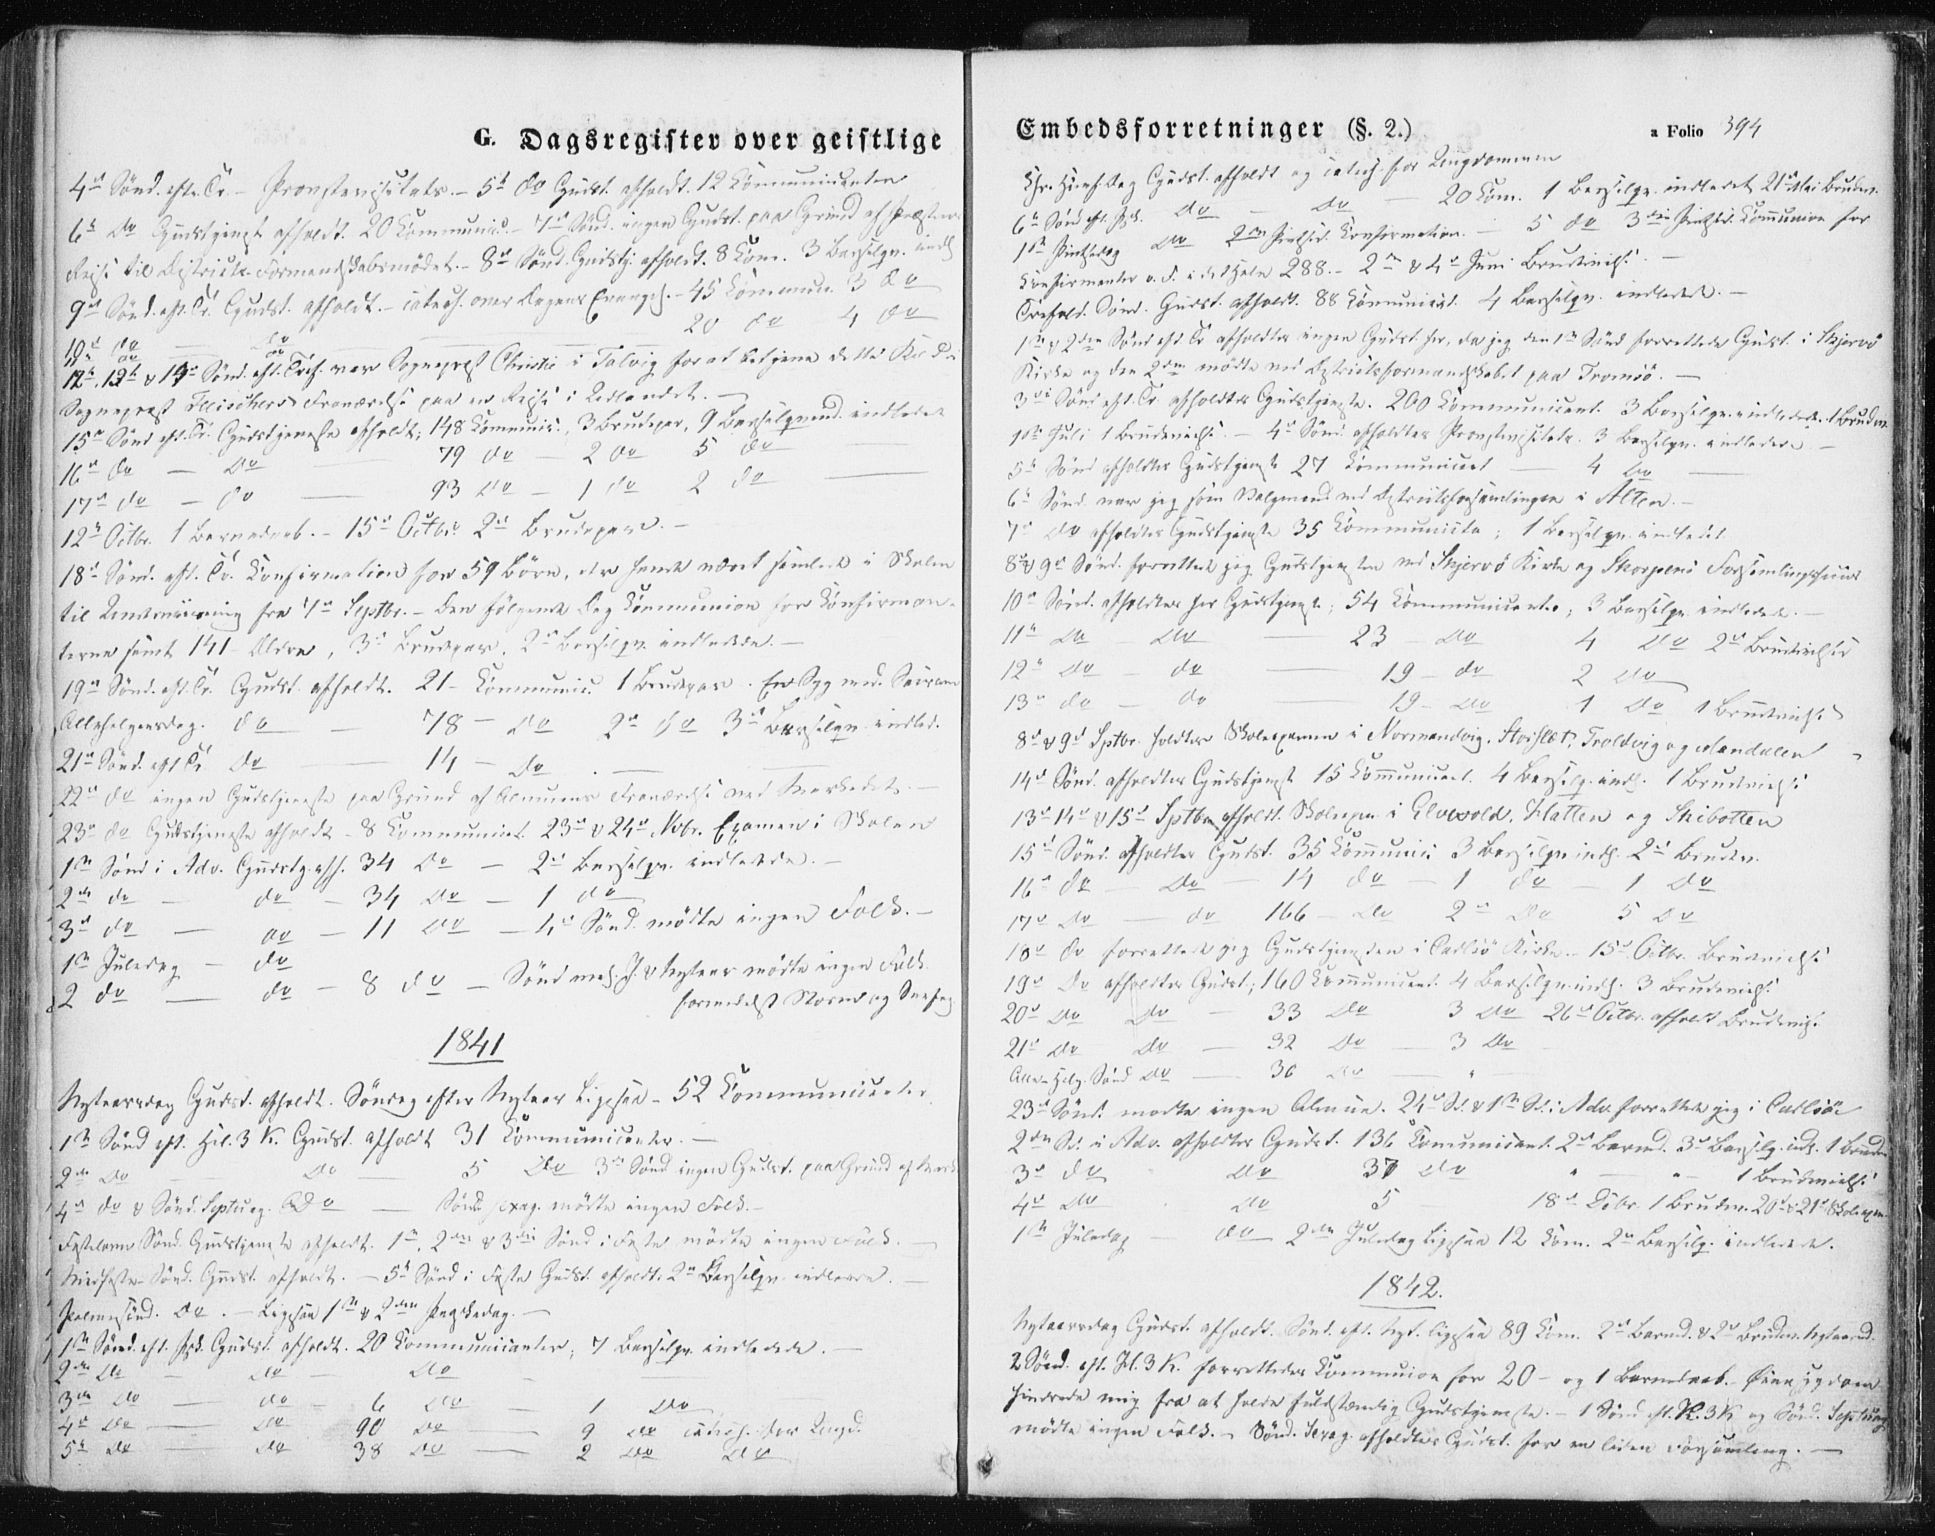 G. Dagsregister over geistlige
4de Sönd. eft. Tr. – Provstevisitats. – 5te do Gudst. afholdt. 12 Kommunicanter
6te do Gudstjenest afholdt. 20 Kommunic. – 7de Sönd. ingen Gudst. paa Grund af Præstens
Reise til Districts Formandskabsmödet. – 8de Sönd. Gudstj. afholdt. 8 Kom. 3 Barselqv. indl.
9de Sönd. eft. Tr. Gudst. afholdt. – catech. over Dagens Evangel. – 45 Kommun. 3 do
10de do — do — 20 do 4 do
12te, 13de & 14de Sönd. eft. Tr. var Sognepræst Christie i Talvig for at betjene dette Kald i
Sognepræst Fleischers Fraværelse paa en Reise i Sedlandet. –
15de Sönd. eft. Tr. Gudstjeneste afholdt, 148 Kommunic., 3 Brudepar, 9 Barselqvind. indledet
16de do — do — 79 do – 2 do 5 do
17de do – do — 93 do – 1 do 2 do
12te Octbr. 1 Barnedaab. – 15de Octbr. 2de Brudepar. –
18de Sönd. eft. Tr. Konfirmation for 59 Börn, der havde været samlede i Skolen
til Underviisning fra 7de Septbr. – den fölgende Dag Kommunion for Konfirman-
terne samt 141 Ældre, 3de Brudepar, 2de Barselqv. indledede. –
19de Sönd. eft. Tr. Gudst. afholdt. 21 – Kommunic. 1 Brudepar.
Allehelgensdag. do — 78 – do 2de do 3de Barselqv. indled.
21de Sönd. eft. Tr. do — 14 – do
22de do ingen Gudstjeneste paa Grund af Almuens Fraværelse ved Markedet. –
23de do Gudstjeneste afholdt – 8 Kommunicant. 23de & 24de Nvbr. Examen i Skolen
1ste Sönd i Adv. Gudstj. afh. 34 do – 2de Barselqv. indledede. –
2den do — do – 34 do – 1 do
3de do — do – 11 do – 4de Sönd. mödte ingen Folk. –
1ste Juledag – do
2 do — do – 8 do – Sönd mel. J. & Nytaar mödte ingen Folk
formedelst Storm og Snefog
1841
Nytaarsdag Gudst. afholdt. Söndag efter Nytaar Ligesaa – 52 Kommunicanter
1ste Sönd eft. Hel. 3 K. Gudst. afholdt 31 Kommunicanter. –
2den do — do — 5 do 3de Sönd ingen Gudst. paa Grund af Mark
4de do & Sönd. Septuag. do — Sönd. sexag. mödte ingen Folk. –
Fastelavns Sönd. Gudstjeneste afholdt. 1ste, 2den & 3die Sönd i Faste mödte ingen Folk. –
Midfaste Sönd. Gudst. afholdt. – 5te Sönd i Faste Gudst. afholdt. 2de Barselqv. indledede. –
Palmesönd. do. – Ligesaa 1ste & 2den Paaskedag. –
1ste Sönd. eft. Psk. Gudst. afholdt. 20 Kommunicanter, 7 Barselqv. indledede. –
2den do – do – do
3die do — do – 6 do – 1 do
4de do — do 90 do — 9 do catech. for Ungd.
5te do — do 38 do — 2 do do
Embedsforretninger (§. 2.) a Folio 394
Chr. Himf. Dag Gudst. afholdt og catech. for Ungdommen
6te Sönd eft. Psk. do – do – 20 Kom. 1 Barselqv. indledet 21de Mai Brudev.
1ste Pintsedag do 2den Pintsed. Konfirmation. – 5 do 3die Pintsed. Kommunion for
Konfirmanter o. Fl. i det Hele 288. – 2den & 4de Juni Brudevielse. –
Trefold. Sönd. Gudst. afholdt. 88 Kommunicant. 4 Barselqv. indledede. –
1ste & 2den Sönd eft. Tr. afholdtes ingen Gudst. her, da jeg den 1ste Sönd forrettede Gudst. i Skjervö
Kirke og den 2den mödte ved Districtsformandskabet paa Tromsö. –
3die Sönd eft. Tr. afholdtes Gudstjeneste. 200 Kommunicant. 3 Barselqv. indledede. 1 Brudev.
Juli 1 Brudevielse. – 4de Sönd. afholdtes Provstevisitats. 3 Barselqv. indledede –
5te Sönd afholdtes Gudstjeneste 27 Kommunicant — 4 do
6te Sönd. var jeg som Valgmand ved Districtsforsamlingen i Alten. –
7de do afholdtes Gudstjeneste 35 Kommunicanter; 1 Barselqv. indledet
8de & 9de Sönd. forrettede jeg Gudstjenesten ved Skjervö Kirke og Skorpens Forsamlingshuus
10de Sönd. afholdtes her Gudstjeneste; 54 Kommunicanter, 3 Barselqv. indledede. –
11te do – do — 23 – do 4 do 2de Brudevielser
12te do – do — 19 – do 2 do
13de do – do — 19 – do 1 do 1 Brudevielse
8de & 9de Sptbr. holdtes Skoleexamen i Normandvig, Storslet, Troldvig og Mandalen –
14de Sönd. afholdtes Gudstjenest 15 Kommunicant. 4 Barselqv. indl. 1 Brudevielse
13de 14de & 15de Sptbr. afholdt. Skoleexam. i Elvevold, Hatten og Skibotten
15de Sönd. afholdtes Gudst. 35 Kommunic. 3 Barselqv. indl. 2de Brudev.
16de do – do – 14 do – 1 do – 1 do
17de do — do 166 – do 2de do 5 do
18de do forrettede jeg Gudstjenesten i Carlsö Kirke. – 15de Octbr. Brudevielse
19de do afholdtes Gudst.; 160 Kommunicant. 4 Barselqv. indl. 3 Brudevielse
20de do do – 33 do 3 do 26de Octbr. afholdt Brudeviels.
21de do do – 32 do – 3 do
Alle-Helg. Sönd do – 30 do — "
23de Sönd. mödte ingen Almue. 24de Sd. & 1ste Sd. i Adv. forrettede jeg i Carlsöe
2den Sd. i Adv. afholdtes Gudst. 136 Kommunicant. 2de Barned. 3de Barselqv. indl. 1 Brudev
3de do do 37 do " — " – 1 Brudevielse
4de do do 5 – 18de Decbr. 1 Brudev. 20de & 21de Skoleexam.
1ste Juledag – do – 2den Juledag Ligesaa 12 Kom. 2de Barselqv. indledede.
1842.
Nytaarsdag Gudst. afholdt. Sönd. eft. Nyt. ligesaa 89 Kom. 2de Barned. & 2de Brudev. Nytaarsd.
2 Sönd. eft. H. 3 K. forrettedes Kommunion for 20 – og 1 Barnedaab. – Öiensygdom
hindrede mig fra at holde fuldstændig Gudstjeneste. – 1 Sönd eft. H. 3 K og Sönd. Septuag
mödte ingen Folk. – Sönd. Sexag. afholdtes Gudst. for en liden Forsamling. –